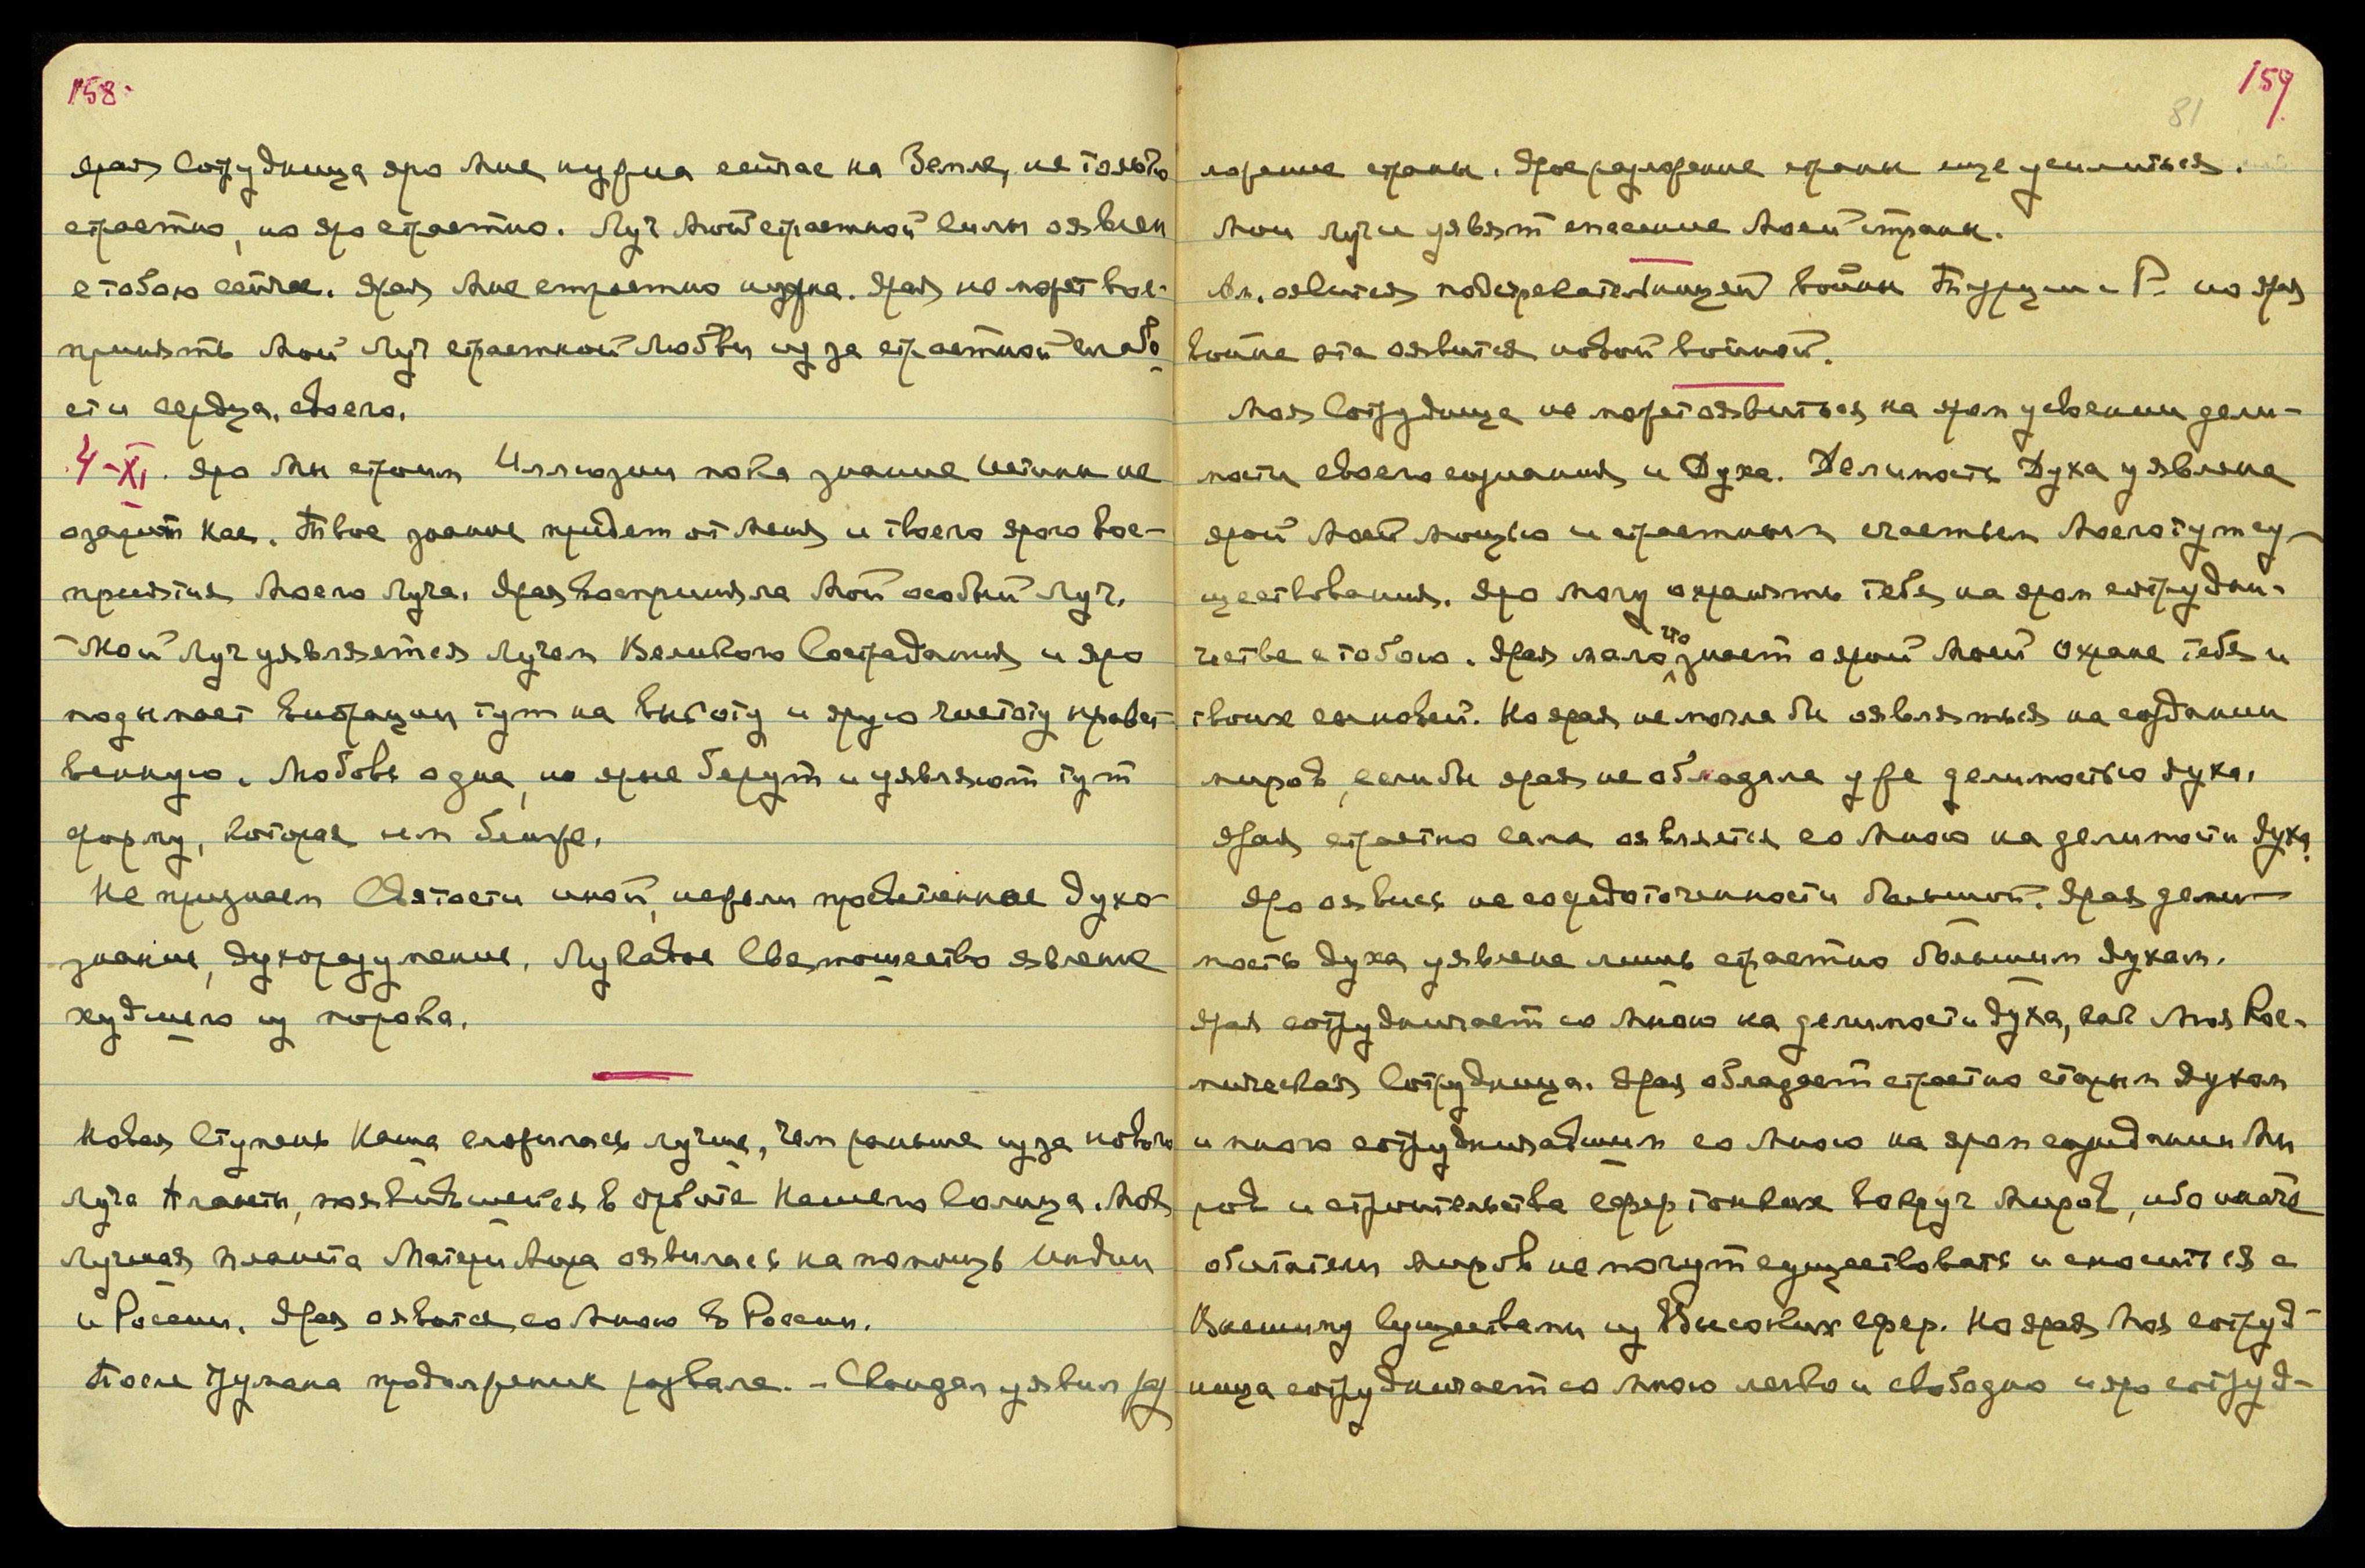 158.
ярая Сотрудница яро Мне нужна сейчас на Земле, не только
страстно, но яро страстно. Луч Мой страстной силы оявлен
с тобою сейчас. Ярая Мне страстно нужна. Ярая не может вос-
принять Мой Луч страстной Любви из за страстной слабо-
сти сердца, своего.
4-XI. Яро Мы строим Иллюзии пока знание Истины не
озарит Нас. Твое знание придет от Меня и твоего ярого вос-
приятия Моего Луча. Ярая восприняла Мой особый Луч.
Мой Луч уявляется Лучом Великого Сострадания и яро
подымает вибрации тут на высоту и ярую чистоту нравст-
венную. Любовь одна, но ярые берут и уявляют тут
форму, которая им ближе.
Не признаем Святости иной, нежели просветленное духо-
знание, духоразумение. Лукавое Святошество явление
худшего из порока.
Новая Ступень Наша сложилась лучше, чем раньше из за нового
Луча Планеты, появившейся в орбите Нашего Солнца. Моя
Лучшая планета Матери Мира оявилась на помощь Индии
и России. Ярая оявится со Мною в России.
После Трумана продолжение развала. - Скандал уявил раз
159
81
ложение страны. Ярое разложение страны еще усилиться.
Мои лучи уявят спасение Моей страны.
Ан. оявится подстрекательницей войны Турции с Г. но ярая
война эта оявится новой войной.
Моя Сотрудница не может оявиться на яром усвоении дели-
мости своего сознания и Духа. Делимость Духа уявлена
ярой Моей мощью и страстным счастьем Моего тут су-
ществования. Яро могу охранять тебя на яром сотрудни-
честве с тобою. Ярая мало что знает о ярой Моей Охране тебя и
твоих сыновей. Но ярая не могла бы оявляться на создании
миров, если бы ярая не обладала уже делимостью духа.
Ярая страстно сама оявляется со Мною на делимости духа.
Яро оявись на сосредоточенности большой. Ярая дели-
мость духа уявлена лишь страстно большим духам.
Ярая сотрудничает со Мною на делимости духа, как Моя Кос-
мическая Сотрудница. Ярая обладает страстно старым духом
и много сотрудничавшим со Мною на яром созидании Ми
ров и строительства сфер тонких вокруг Миров, ибо иначе
обитатели миров не могут существовать и сноситься с
Высшими Существами из Высоких сфер. Но ярая Моя сотруд-
ница сотрудничает со Мною легко и свободно и яро сотруд-